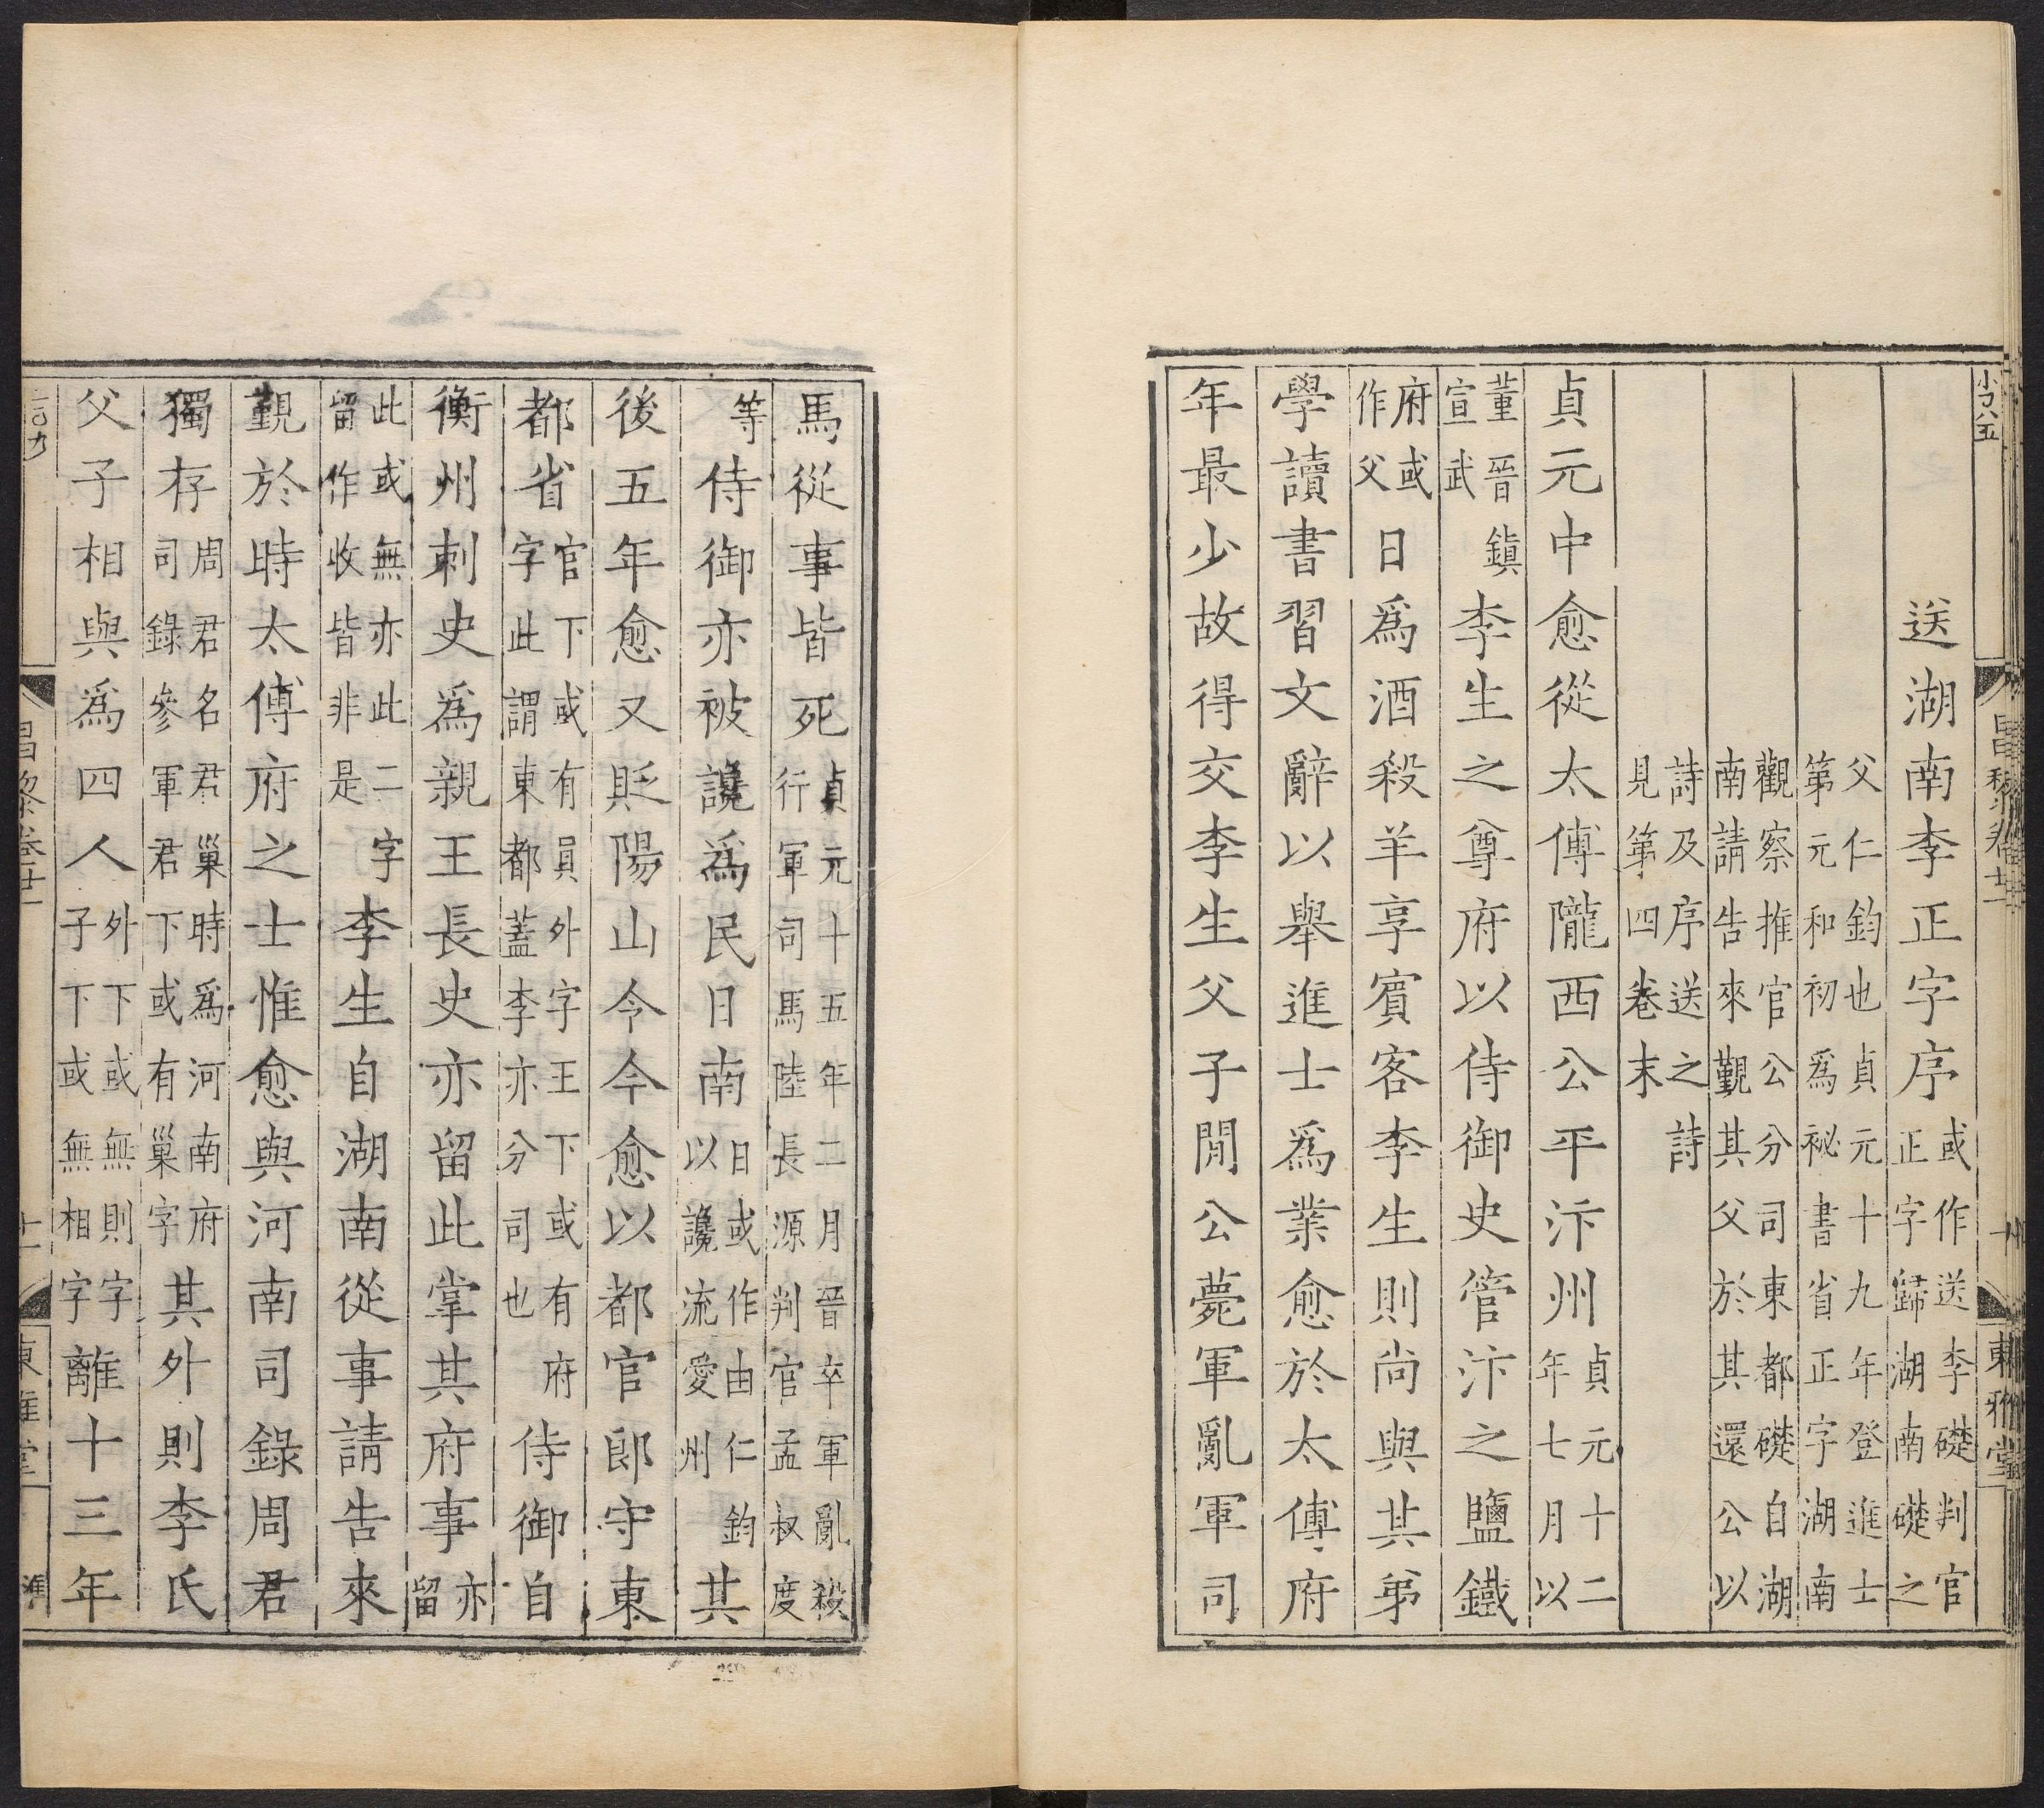 昌黎卷廿
十
東雅堂
送湖南李正字序或作送李礎判官正字歸湖南礎之
父仁鈞也貞元十九年登進士第元和初爲祕書省正字湖南
觀察推官公分司東都礎自湖南請告來覲其父於其還公以
詩及序送之詩見第四卷末
貞元中愈從太傅隴西公平汴州貞元十二年七月以
董晉鎮宣武李生之尊府以侍御史管汴之鹽鐵
府或作父日爲酒殺羊享賓客李生則尚與其弟
學讀書習文辭以舉進士爲業愈於太傅府
年最少故得交李生父子閒公薨軍亂軍司
馬從事皆死貞元十五年二月晉卒軍亂殺行軍司馬陸長源判官孟叔度
等侍御亦被讒爲民日南日或作由仁鈞以讒流愛州其
後五年愈又貶陽山令今愈以都官郎守東
都省官下或有員外字王下或有府字此謂東都蓋李亦分司也侍御自
衡州刺史爲親王長史亦留此掌其府事亦留
此或無亦此二字留作收皆非是李生自湖南從事請告來
覲於時太傅府之士惟愈與河南司錄周君
獨存周君名君巢時爲河南府司錄參軍君下或有巢字其外則李氏
父子相與爲四人外下或無則字子下或無相字離十三年
昌黎卷廿
十一
東雅堂